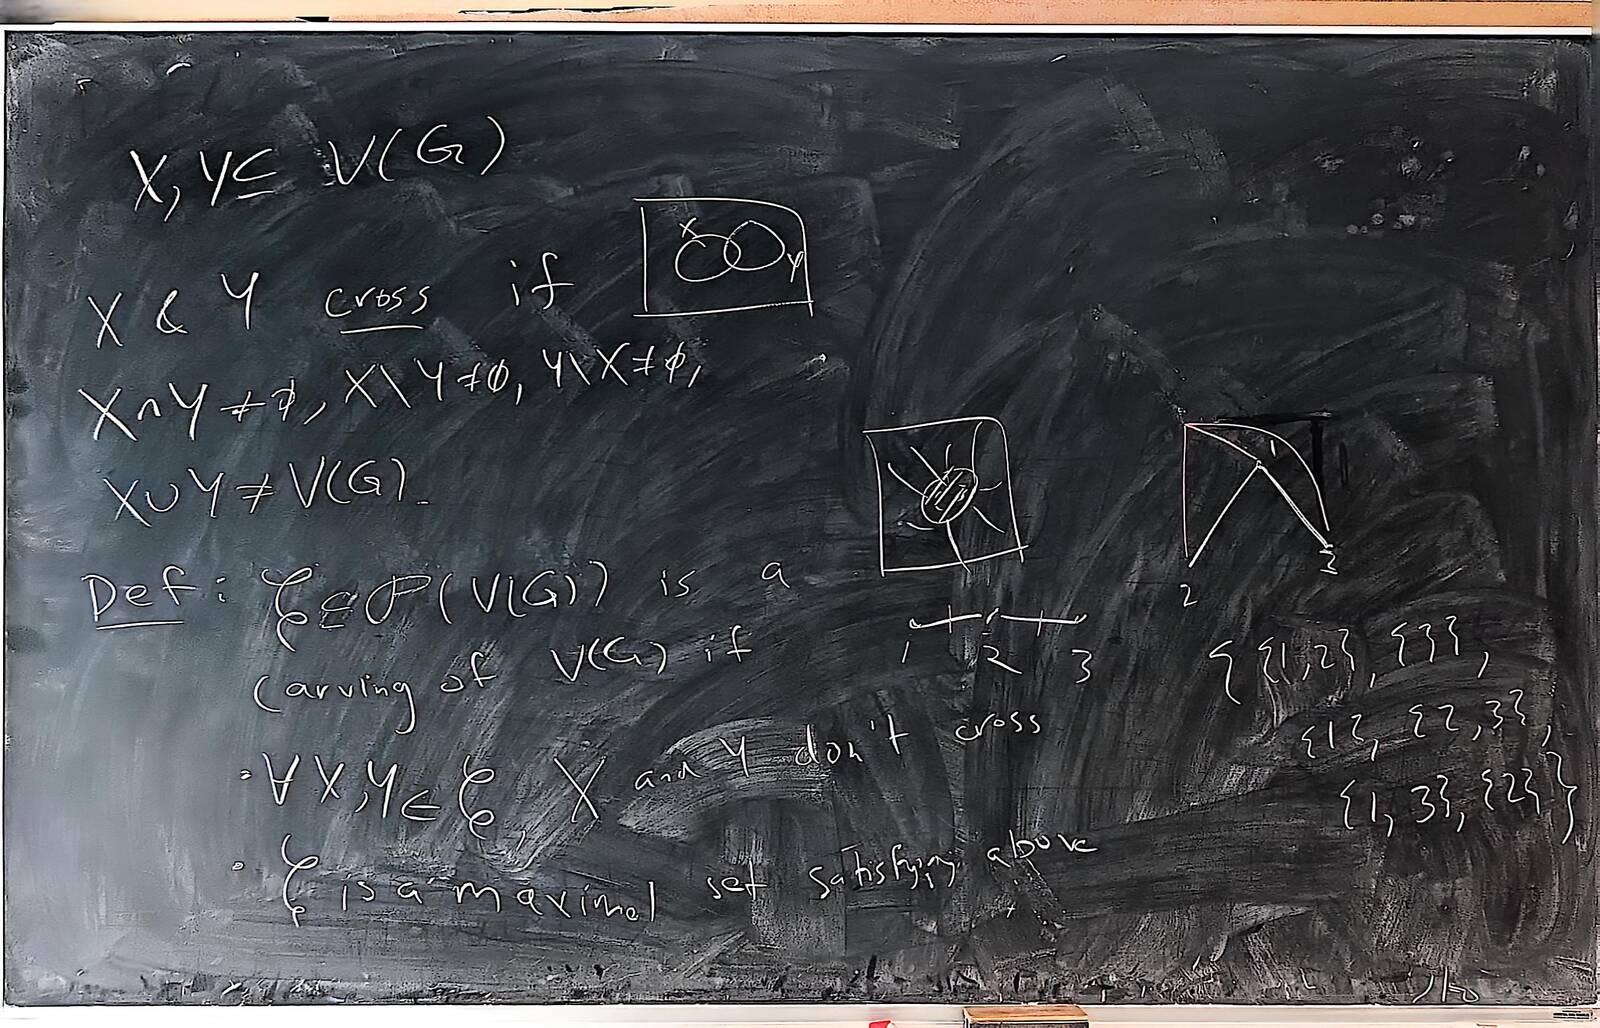 X, Y ⊆ V(G)
X & Y cross if
X
Y
X∩Y ≠ ∅, X\Y ≠ ∅, Y\X ≠ ∅,
X∪Y ≠ V(G).
Def: 𝒞 ⊆ 𝒫(V(G)) is a
carving of V(G) if
• ∀ X, Y ∈ 𝒞, X and Y don't cross
• 𝒞 is a maximal set satisfying above
1 2 3
1
2
3
{ {1,2}, {3},
{1}, {2,3},
{1, 3}, {2} }